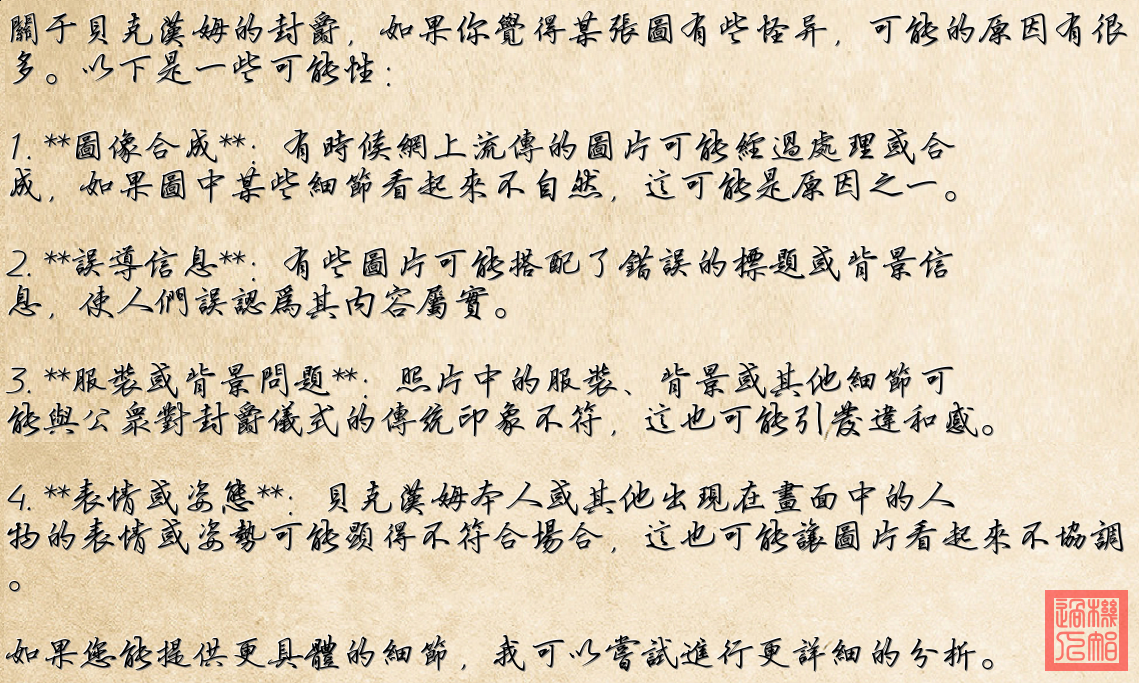 關于貝克漢姆的封爵，如果你覺得某張圖有些怪异，可能的原因有很
多。以下是一些可能性：
1. **圖像合成**：有時候網上流傳的圖片可能經過處理或合
成，如果圖中某些細節看起來不自然，這可能是原因之一。
2. **誤導信息**：有些圖片可能搭配了錯誤的標題或背景信
息，使人們誤認爲其内容屬實。
3. **服裝或背景問題**：照片中的服裝、背景或其他細節可
能與公衆對封爵儀式的傳統印象不符，這也可能引發違和感。
4. **表情或姿態**：貝克漢姆本人或其他出現在畫面中的人
物的表情或姿勢可能顯得不符合場合，這也可能讓圖片看起來不協調
。
如果您能提供更具體的細節，我可以嘗試進行更詳細的分析。